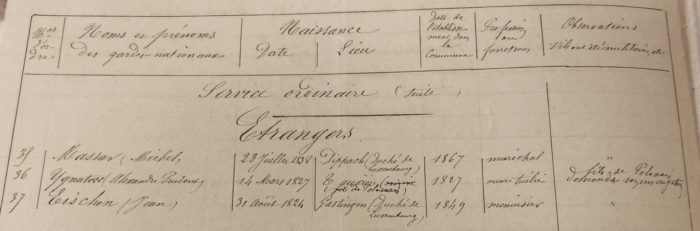 Nos d'or-dre
Noms et prénoms des gardes-nationaux
Naissance
Date
Lieu
Date de l'établisse-ment dans la Commune
Profession ou fonctions
Observations
Service ordinaire (suite)
Etrangers
35 Massar (Michel) 23 Juillet 1838 Dippach (Duché de Luxembourg) 1867 maréchal "
36 Ygnatoss (Alexandre Prudent) 14 Mars 1827 1827 ouvr. tuilier fils de Polonais
37 Eischen (Jean) 31 août 1824 Gastingen (Duché de Luxembourg) 1849 menuisier "